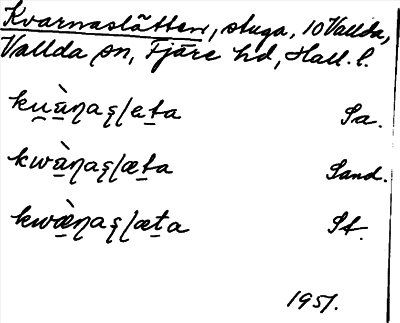 Kvarnaslätten, stuga, 10 Vallda,
Vallda sn, Fjäre hd, Hall. l.
ku̯à̲ɳaȿleta Sa.
kwà̲ɳaȿlæta Sand.
kwæ̲̀ɳaȿlæta St.
1951.